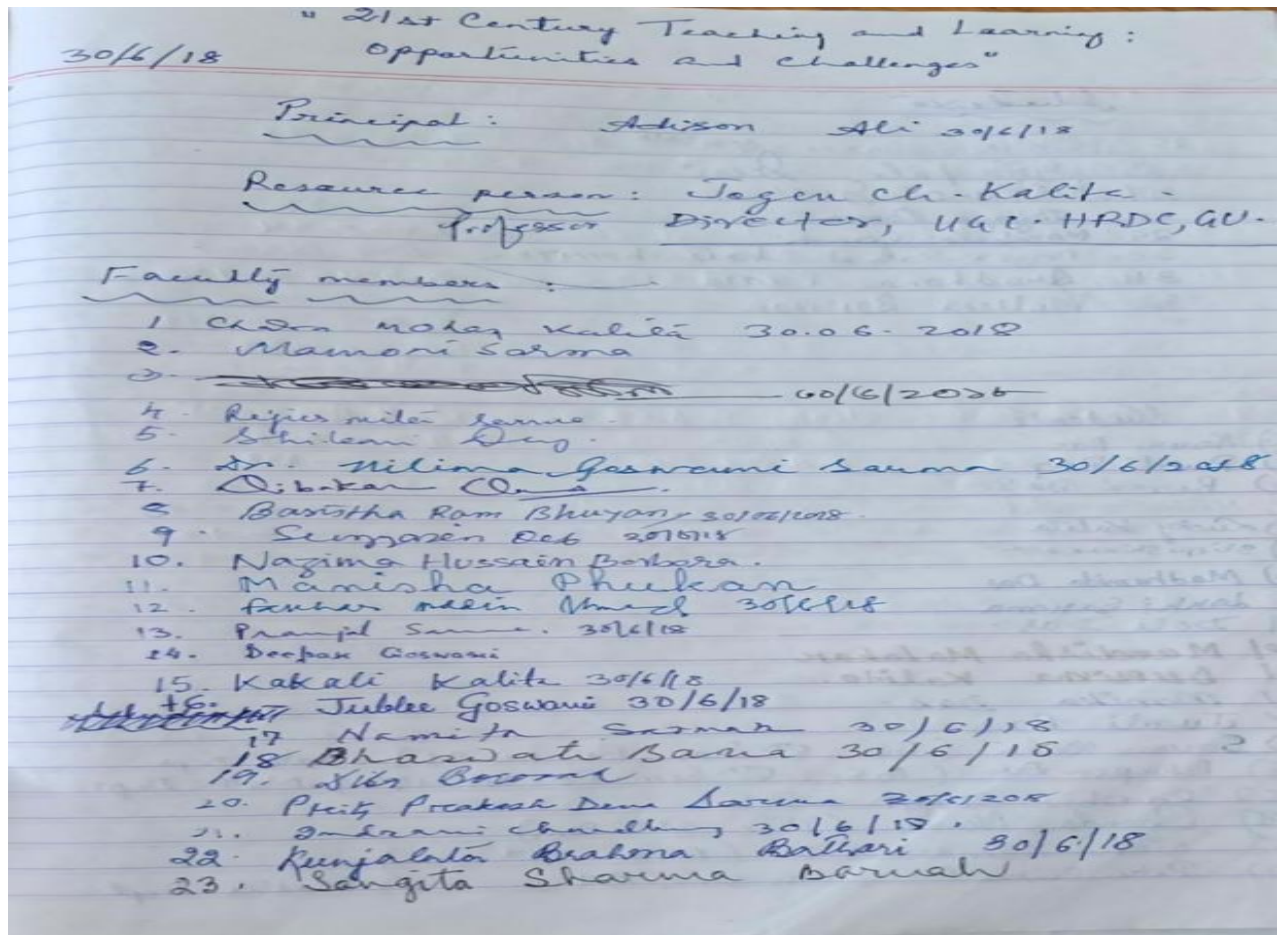 "21st Century Teaching and Learning :
30/6/18 Opportunities and Challenges"
Principal : Adison Ali 30/6/18
Resource person : Jogen Ch. Kalita -
Professor Director, UGC-HRDC, GU.
Faculty members :
1 Mohan Kalita 30.06.2018
2. Mamoni Sarma
3.
4.
5.
6. Dr. Nilima Goswami Sarma 30/6/2018
7. Dibakar
8 Basistha Ram Bhuyan, 30/06/2018.
9. Deb
10. Nazima Hussain Borbora.
11. Manisha Phukan
12. Ahmed 30/6/18
13. Pranjal 30/6/18
14. Deepak Goswami
15. Kakali Kalita 30/6/18
16. Jublee Goswami 30/6/18
17 Namita Sarmah 30/6/18
18 Bhaswati Barua 30/6/18
19.
20. Deva Sarma
21. Indrani Choudhury 30/6/18.
22. Kunjalata Brahma Bathari 30/6/18
23. Sangita Sharma Baruah